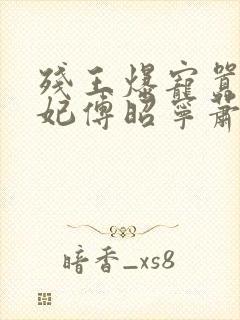 残王爆宠嚣
妃傅昭宁萧
暗香_xs8